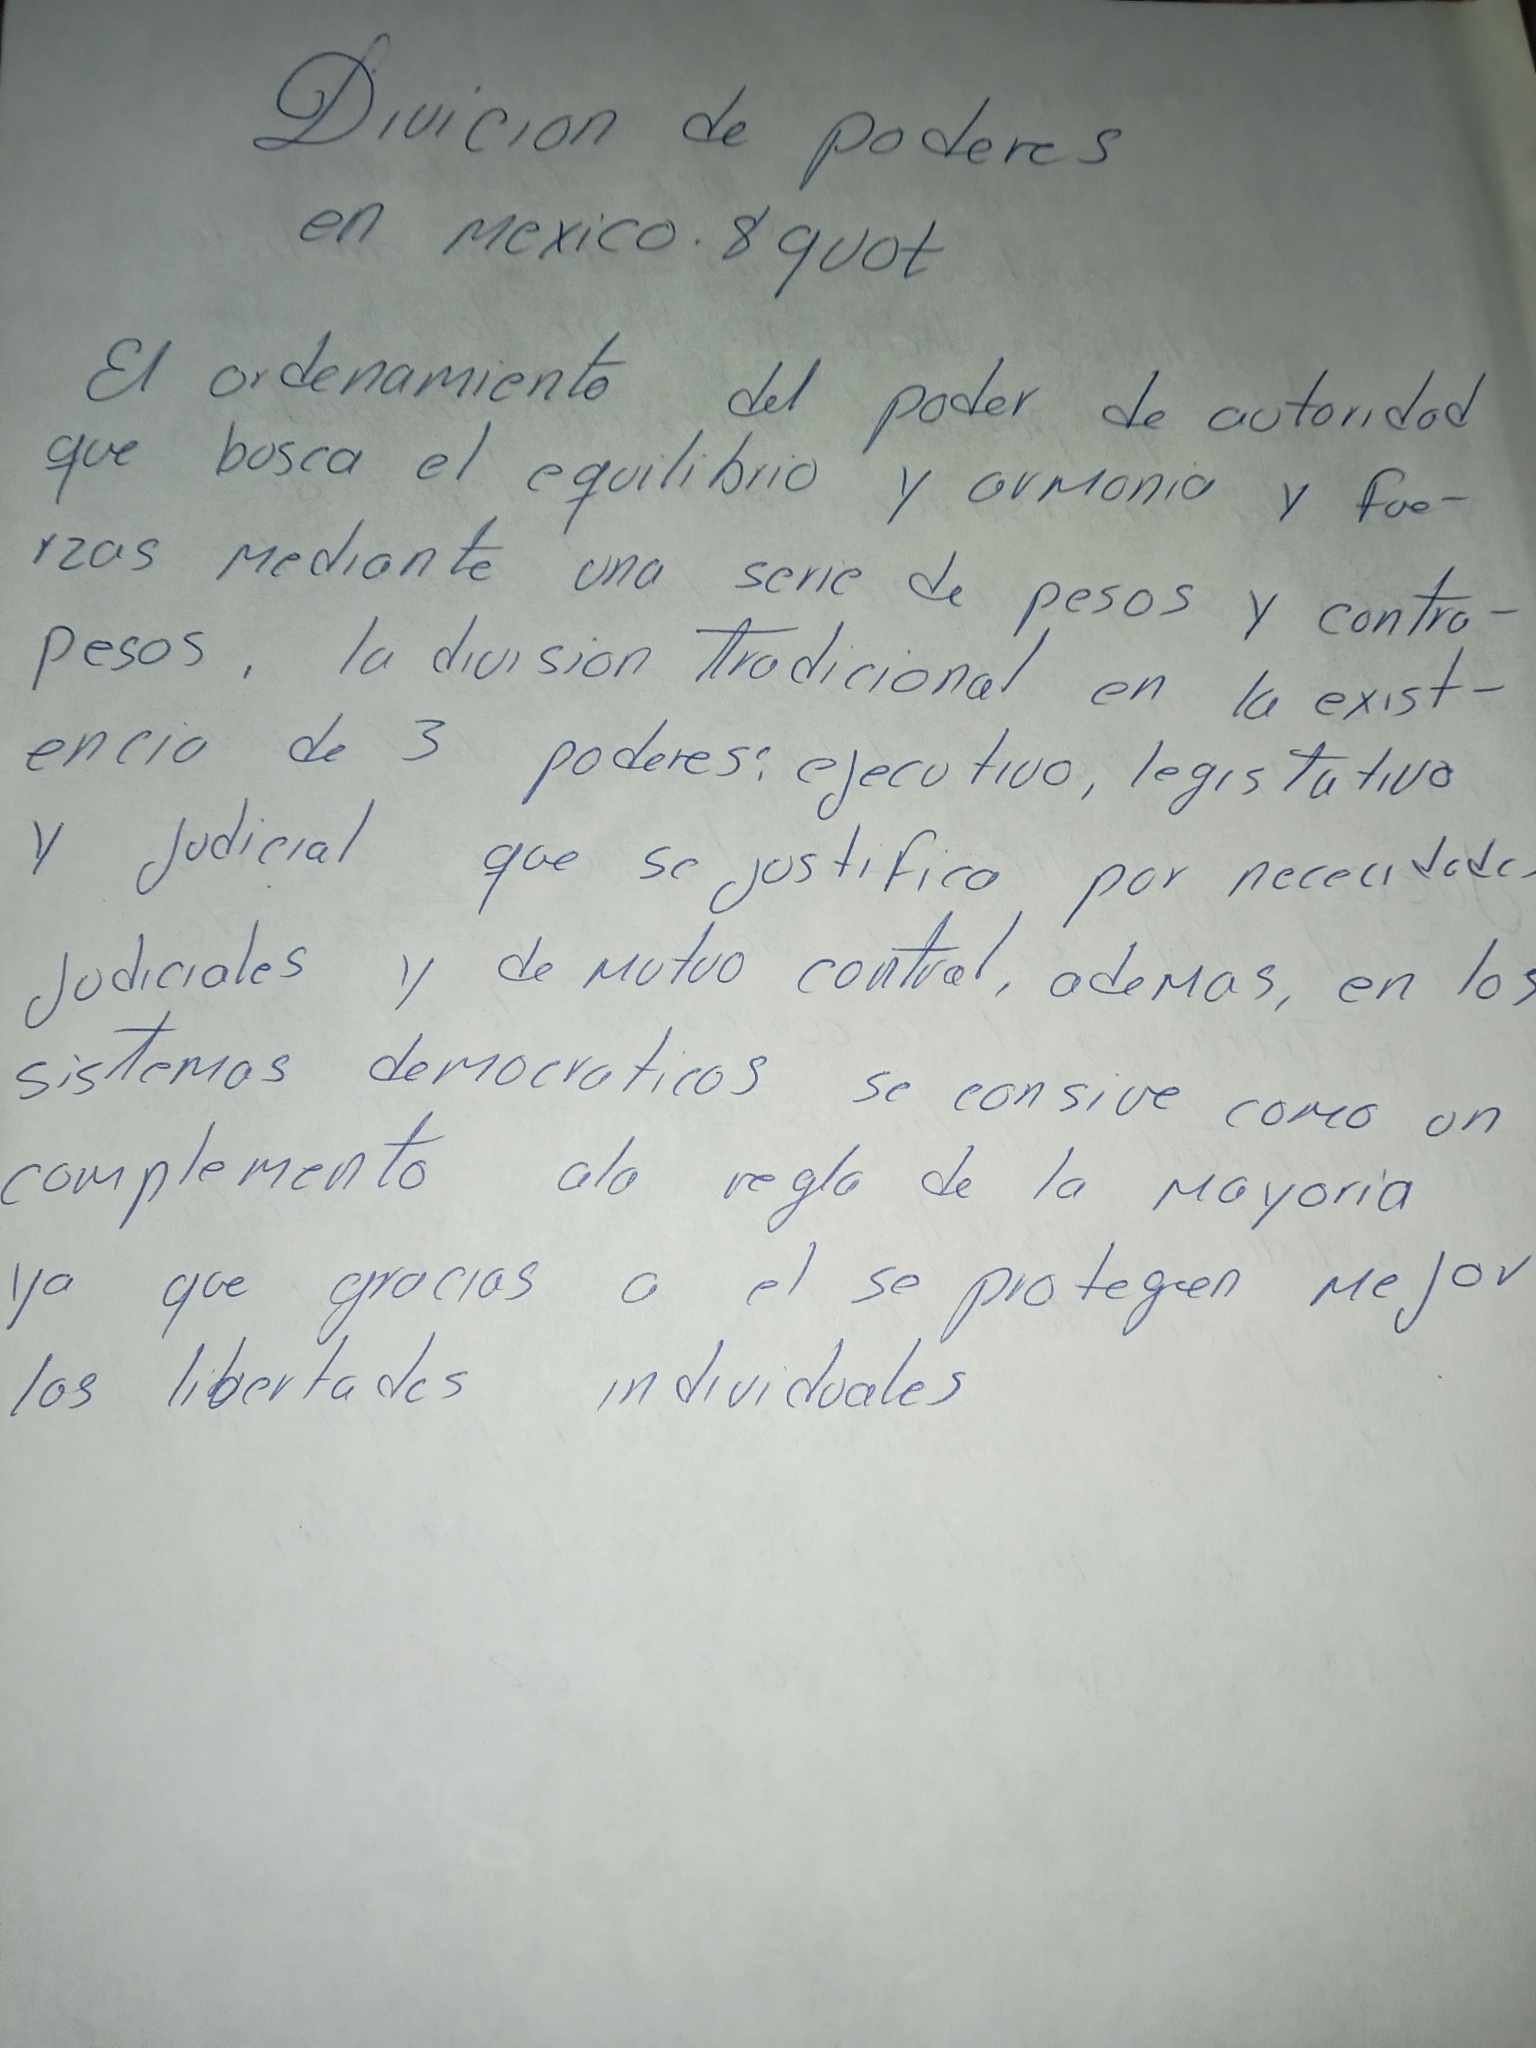 Divicion de poderes
en mexico. &quot
El ordenamiento del poder de autoridad
que busca el equilibrio y armonia y fue-
rzas mediante una serie de pesos y contra-
pesos, la division tradicional en la exist-
encia de 3 poderes: ejecutivo, legistativo
y judicial que se justifica por
judiciales y de mutuo control, ademas, en los
sistemas democraticos se consive como un
complemento ala regla de la mayoria
ya que gracias a el se protegen mejor
las libertades individuales